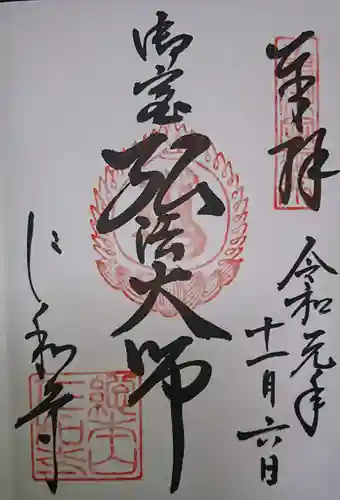 奉拝
令和元年
十一月六日
御室
弘法大師
仁和寺
総本山